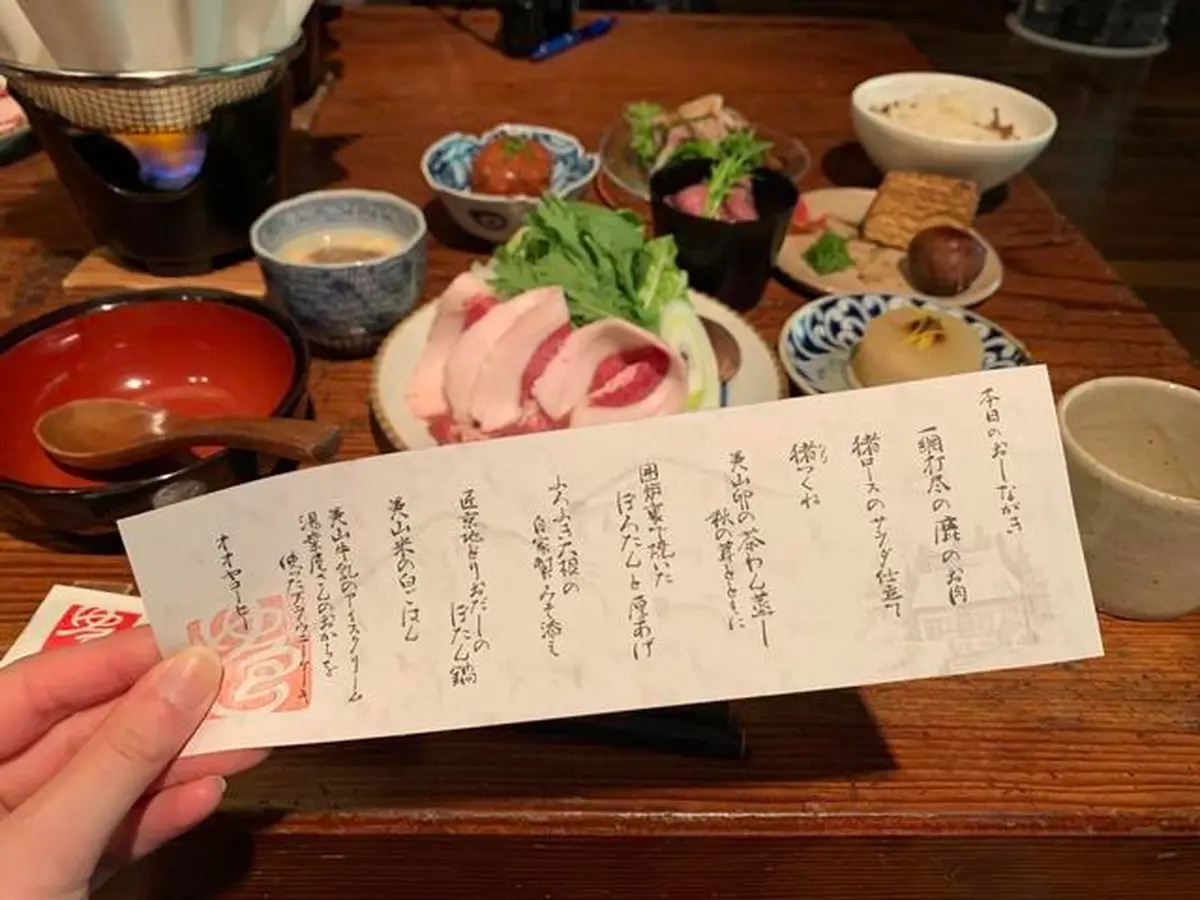 本日のおしながき
一網打尽の鹿のお肉
猪ロースのサラダ仕立て
猪つくね
美山卵の茶わん蒸し
秋の茸とともに
囲炉裏で焼いた
ぼろたんと厚あげ
ふろふき大根の
自家製みそ添え
匠京地どりおだしの
ぼたん鍋
美山米の白ごはん
美山牛乳のアイスクリーム
湯葉屋さんのおからを
使ったブラウニーケーキ
オオヤコーヒー